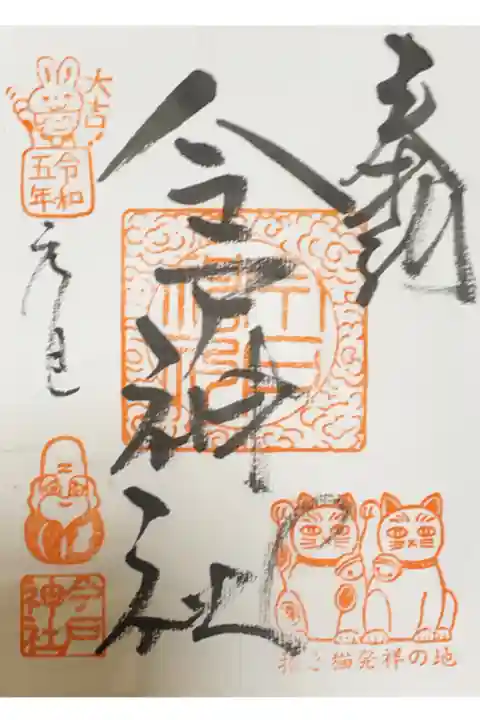 奉拝
今戸神社
大吉
令和
五年
元旦
今戸
神社
招き猫発祥の地